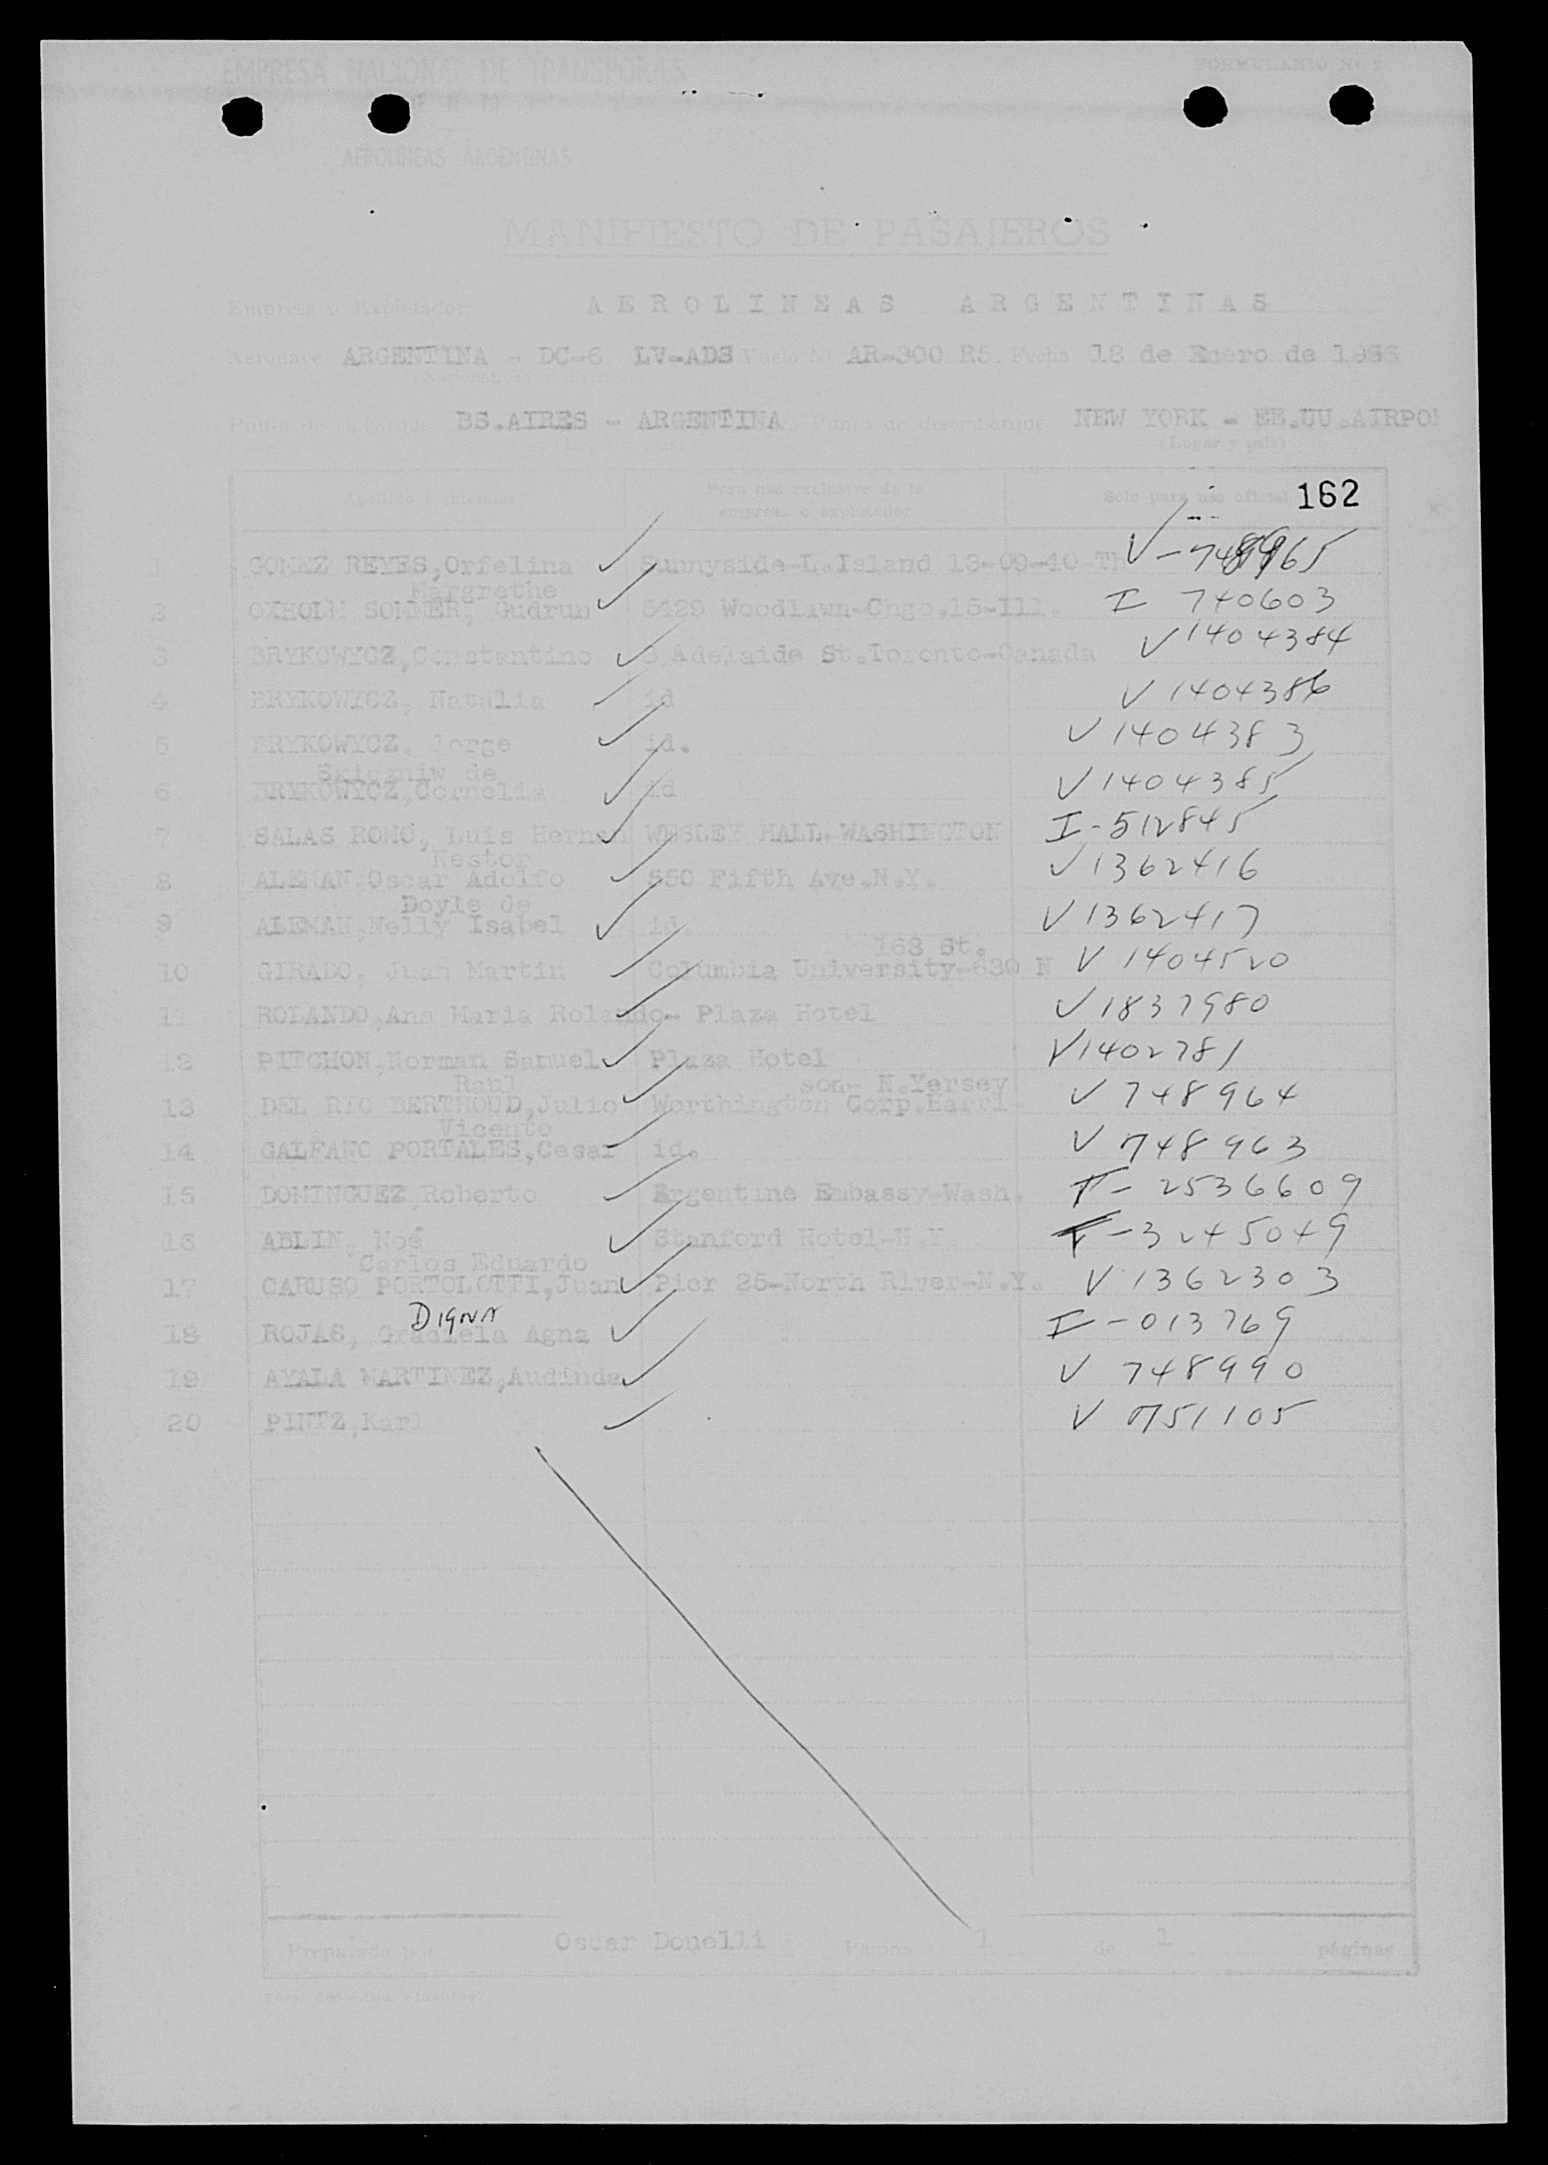 EMPRESA NACIONAL DE TRANSPORTES
FORMULARIO No
AEROLINEAS ARGENTINAS
MANIFIESTO DE PASAJEROS
Empresa o Explotador AEROLINEAS ARGENTINAS
Aeronave ARGENTINA - DC-6 LV-ADS Vuelo No AR-300 R5. Fecha 18 de Enero de
Punto de embarque BS.AIRES - ARGENTINA. Punto de desembarque NEW YORK - EE.UU.AIRPO
(Lugar y país)
Apellido e iniciales Para uso exclusivo de la empresa o explotador Solo para uso oficial 162
1 GOMEZ REYES,Orfelina Sunnyside-L.Island 13-09-40 Th V-748965
Margrethe
2 OXHOLM SOMMER, Gudrun 5429 Woodlawn-Chgo.15-Ill. I 740603
3 BRYKOWYCZ,Constantino Adelaide St.Toronto-Canada V 1404384
4 BRYKOWYCZ, Natalia id V 1404386
5 BRYKOWYCZ, Jorge id. V 1404383
de
6 BRYKOWYCZ,Cornelia id V 1404385
7 SALAS ROMO, Luis Hernan WESLEY HALL-WASHINGTON I-512845
Nestor
8 ALEMAN,Oscar Adolfo 550 Fifth Ave.N.Y. V 1362416
Doyle de
9 ALEMAN,Nelly Isabel id. V 1362417
168 St.
10 GIRADO, Juan Martin Columbia University-630 N V 1404520
11 ROLANDO,Ana Maria Rolando- Plaza Hotel V 1837980
12 PITCHON,Norman Samuel Plaza Hotel V1402781
Raul son- N.Yersey
13 DEL RIO BERTHOUD,Julio Worthington Corp.Harri- V 748964
Vicente
14 GALFANO PORTALES,Cesar id. V 748963
15 DOMINGUEZ,Roberto Argentine Embassy-Wash. T- 2536609
16 ABLIN, Noé Stanford Hotel-N.Y. T-3245049
Carlos Eduardo
17 CARUSO PORTOLOTTI,Juan Pier 25-North River-N.Y. V 1362303
DIGNA
18 ROJAS, Graciela Agna I-013769
19 AYALA MARTINEZ,Audinda V 748990
20 PINTZ,Karl V 0751105
Preparado por Oscar Donelli Página 1 de 1 páginas